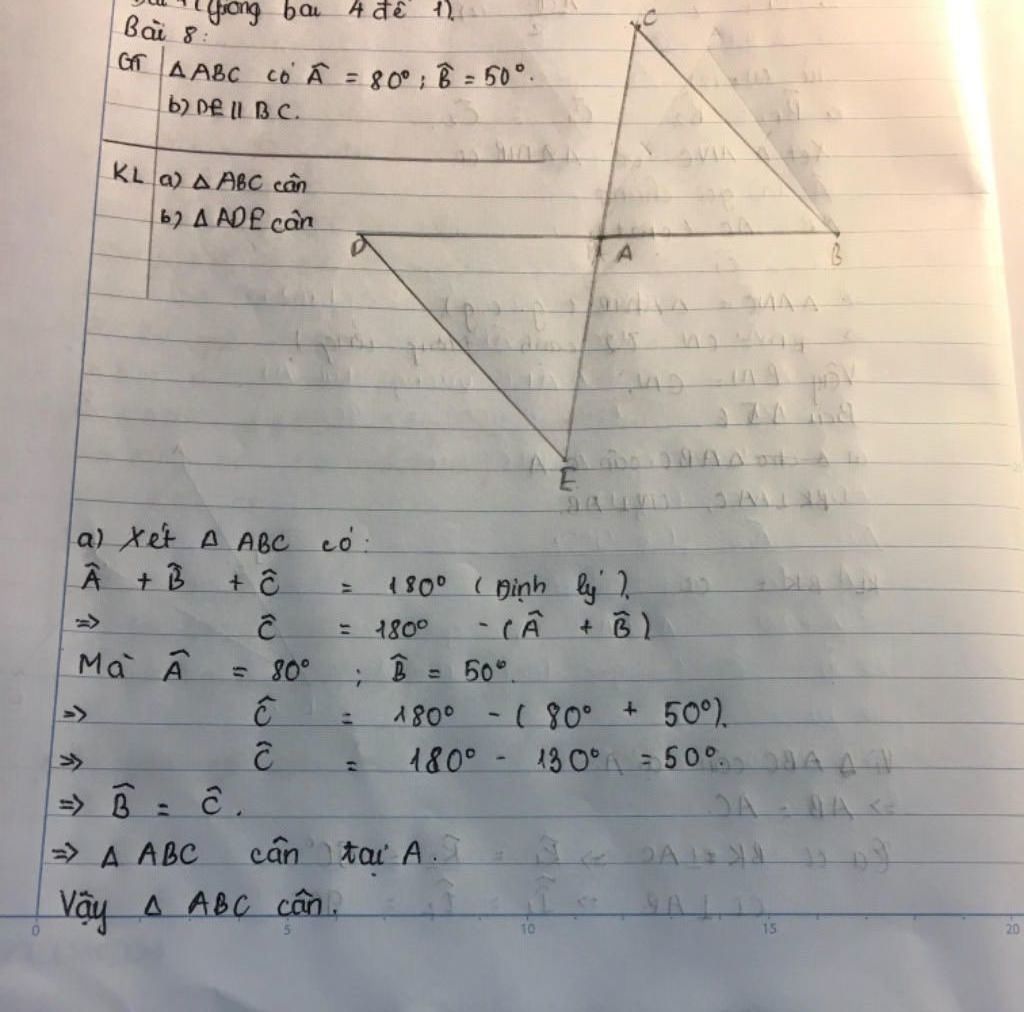 (giống bài 4 đề 1).
Bài 8:
GT ΔABC có Â = 80°; B̂ = 50°.
b) DE || BC.
KL a) Δ ABC cân
b) Δ ADE cân
C
D
A
B
E
a) Xét Δ ABC có:
Â + B̂ + Ĉ = 180° (Định lý).
=> Ĉ = 180° - (Â + B̂)
Mà Â = 80° ; B̂ = 50°.
=> Ĉ = 180° - (80° + 50°).
=> Ĉ = 180° - 130° = 50°.
=> B̂ = Ĉ.
=> Δ ABC cân tại A.
Vậy Δ ABC cân.
0 5 10 15 20